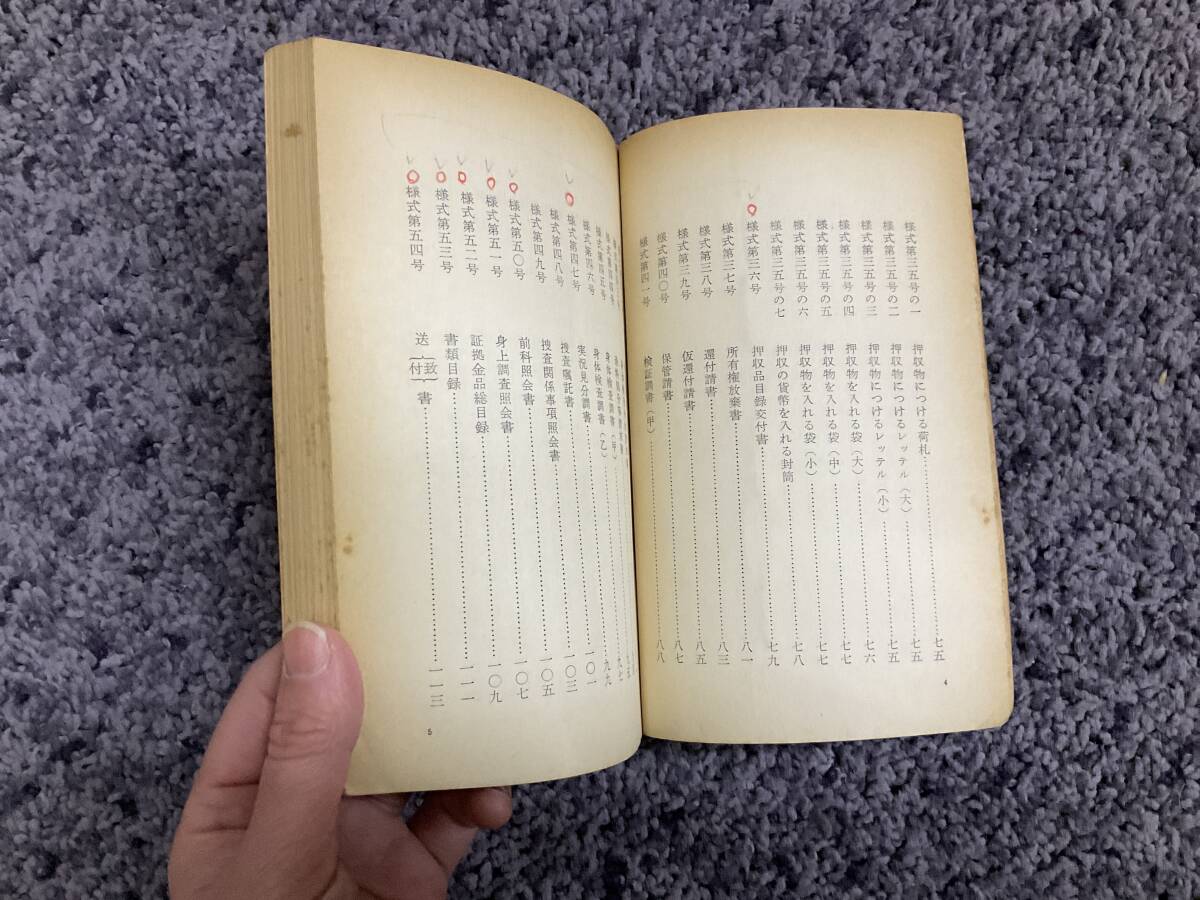 様式第三五号の一 押収物につける荷札……七五
様式第三五号の二 押収物につけるレッテル（大）……七五
様式第三五号の三 押収物につけるレッテル（小）……七五
様式第三五号の四 押収物を入れる袋（大）……七六
様式第三五号の五 押収物を入れる袋（中）……七七
様式第三五号の六 押収物を入れる袋（小）……七七
様式第三五号の七 押収の貨幣を入れる封筒……七八
様式第三六号 押収品目録交付書……七九
様式第三七号 所有権放棄書……八一
様式第三八号 還付請書……八三
様式第三九号 仮還付請書……八五
様式第四〇号 保管請書……八七
様式第四一号 検証調書（甲）……八八
4
身体検査調書（甲）……
様式第四六号 身体検査調書（乙）……九七
様式第四七号 実況見分調書……九九
様式第四八号 捜査嘱託書……一〇一
様式第四九号 捜査関係事項照会書……一〇三
様式第五〇号 前科照会書……一〇五
様式第五一号 身上調査照会書……一〇七
様式第五二号 証拠金品総目録……一〇九
様式第五三号 書類目録……一一一
様式第五四号 送｛致付｝書……一一三
5